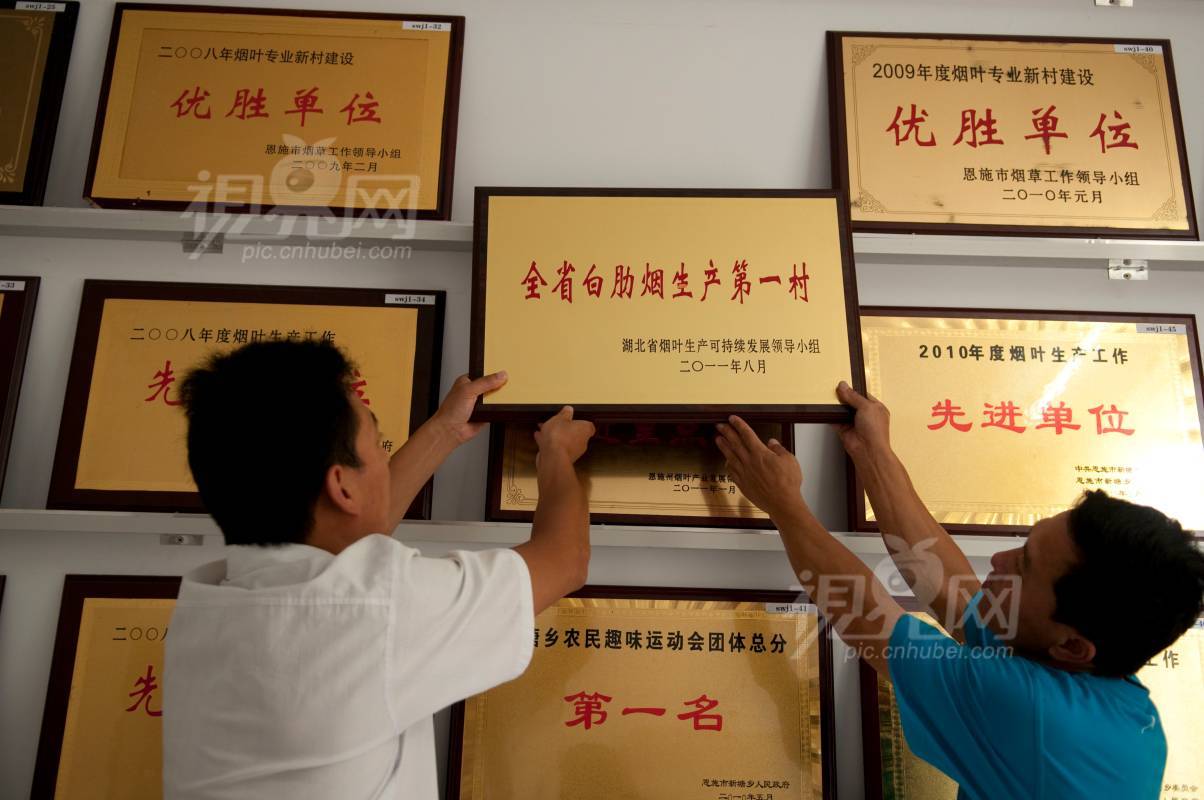 swj1-25
swj1-32
二〇〇八年烟叶专业新村建设
优胜单位
恩施市烟草工作领导小组
二〇〇九年二月
swj1-40
2009年度烟叶专业新村建设
优胜单位
恩施市烟草工作领导小组
二〇一〇年元月
视界网
pic.cnhubei.com
全省白肋烟生产第一村
湖北省烟叶生产可持续发展领导小组
二〇一一年八月
-33
swj1-34
二〇〇八年度烟叶生产工作
先
位
府
恩施州烟叶产业发展领
二〇一一年一月
swj1-45
2010年度烟叶生产工作
先进单位
中共恩施市新塘
恩施市新塘乡
二〇〇八
先
swj1-41
塘乡农民趣味运动会团体总分
第一名
恩施市新塘乡人民政府
二〇一〇年五月
工作
乡委员会
pic.cnhubei.com